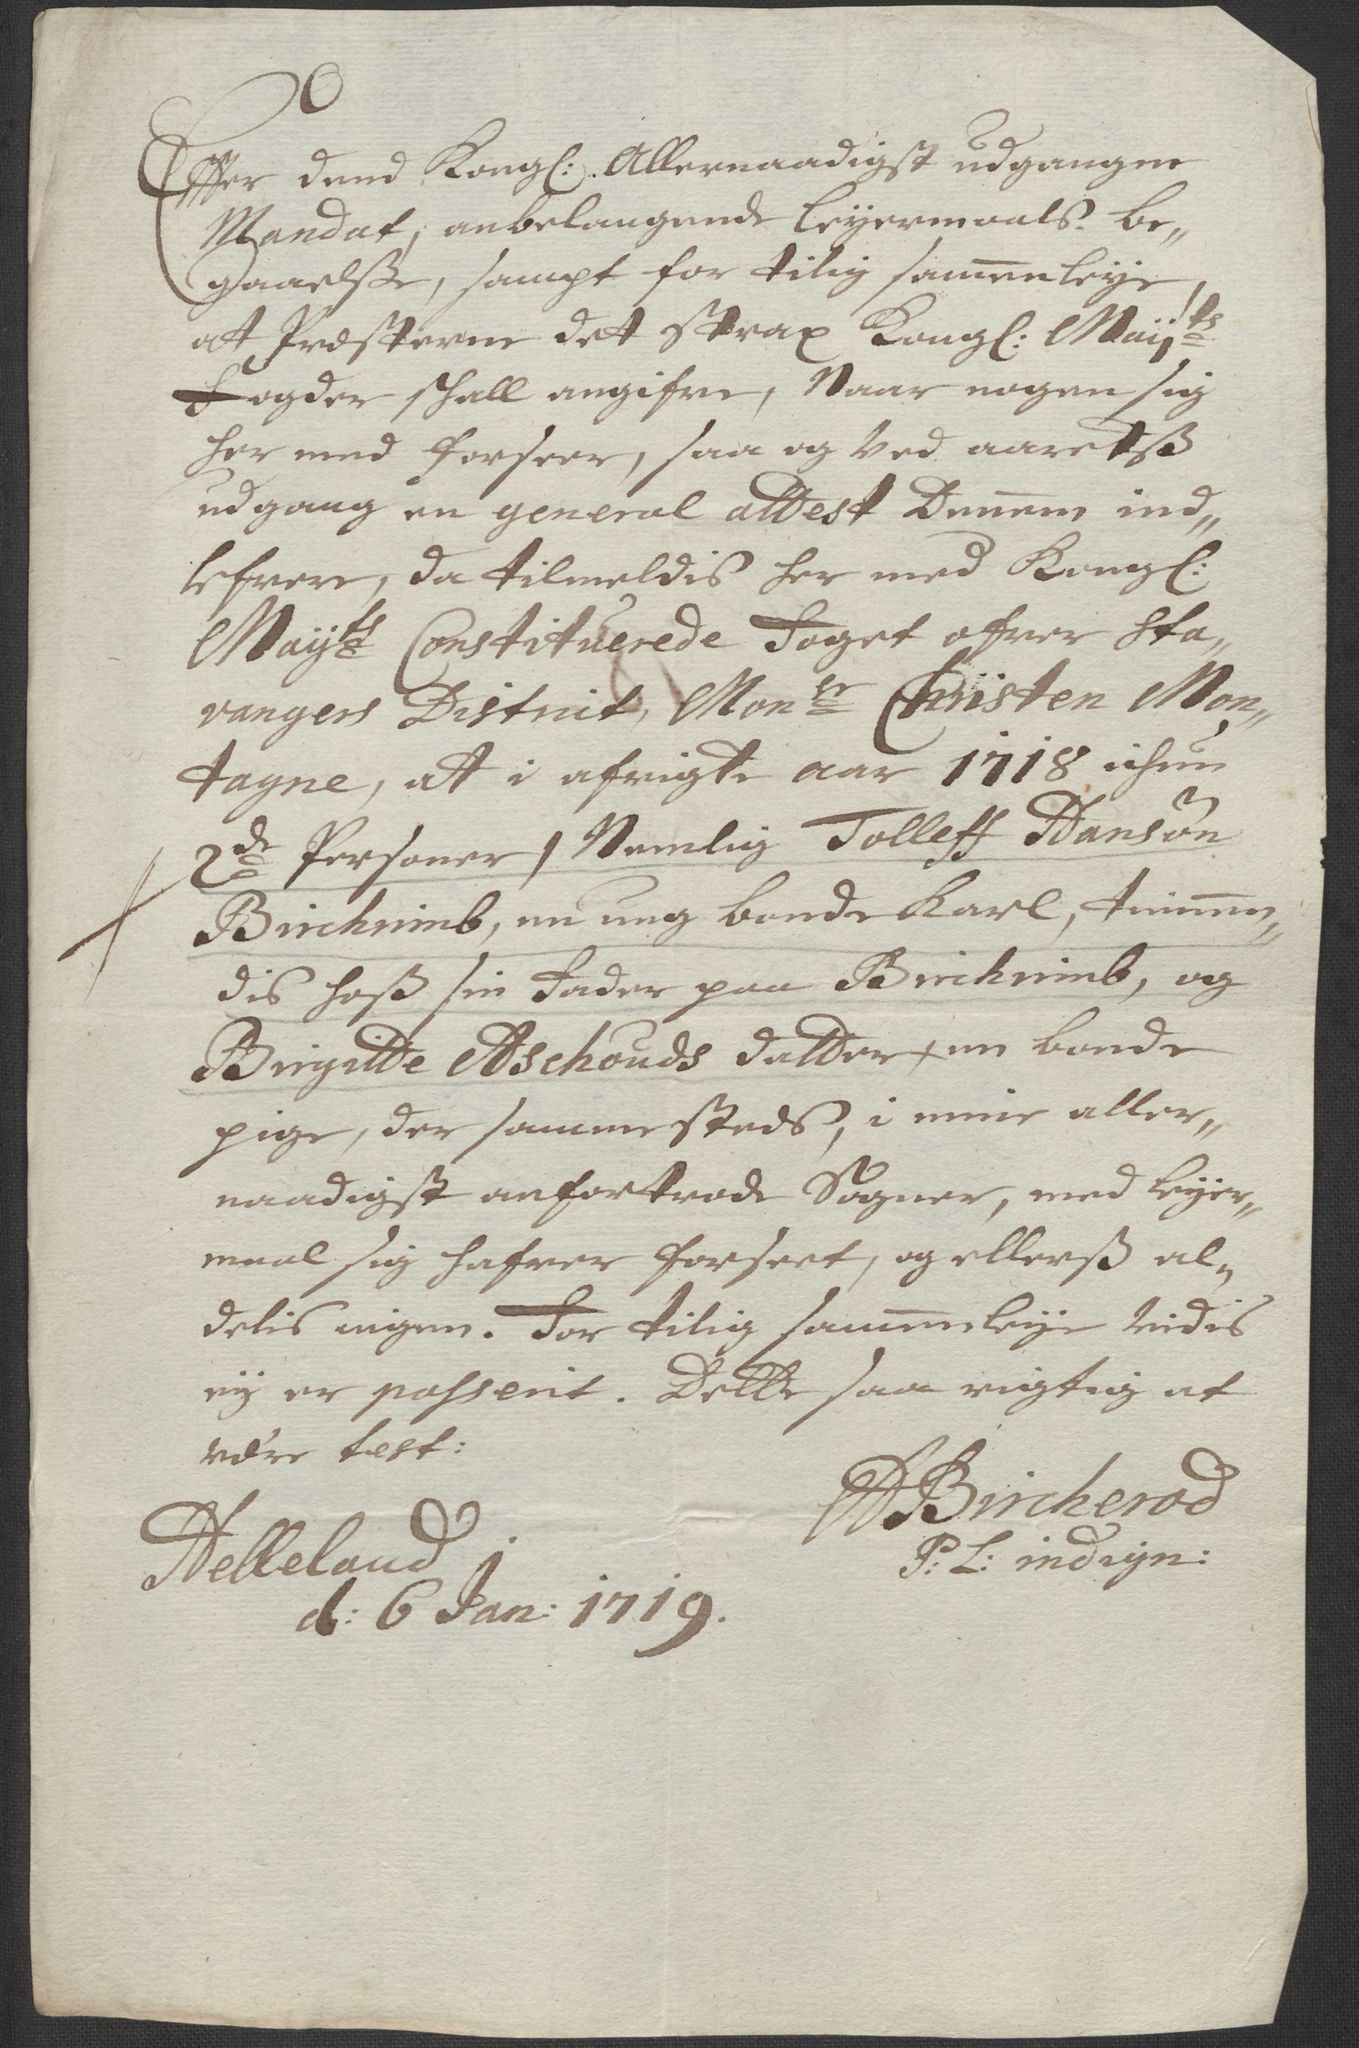 Effter dend Kongl: Allernaadigst udgangne
Mandat, anbelangende Leyermaals be„
gaaelsse, sampt for tilig sammenleye,
att Præsterne det strax Kongl: Mayts
Fogder shall angifve, Naar nogen sig
her med forseer, saa og ved aaretsß
udgang en general attest Dennem ind„
lefvere, da tilmeldis her med Kongl:
Mayts Constituerede Foget ofver Sta„
vangers District, Monsr Christen Mon„
tagne, att i afvigte aar 1718 ichun
2de Personer, Nemlig Tolleff Hansøn
Birchrimb, en ung bonde Karl,
dis hoß sin Fader paa Birchrimb, og
Birgitte Aschouds datter, en bonde
pige, der sammesteds, i mine aller„
naadigst anfortrode Sogner, med leyer„
maal sig hafver forseet, og ellerß al„
delis ingen. For tilig sammenleye vidis
ey er passerit. Dette saa rigtig at
være test:
HBircherod
P: L: indign:
Helleland
d: 6 Jan: 1719.